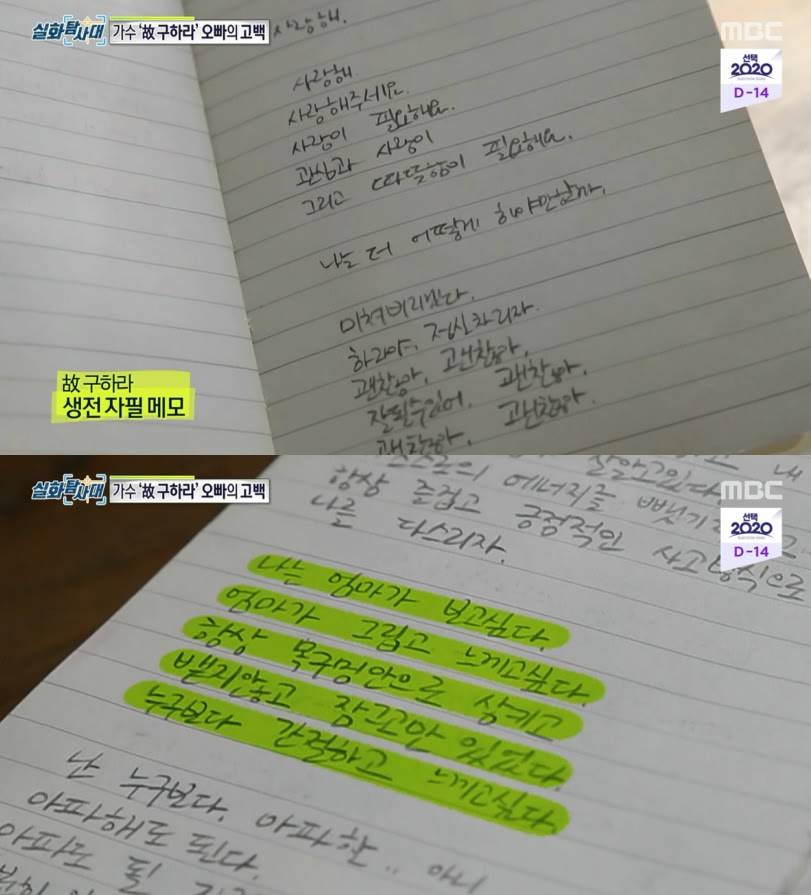 실화탐사대
가수 '故 구하라' 오빠의 고백
MBC
선택
2020
D-14
사랑해.
사랑해.
사랑해주세요.
사랑이 필요해요.
관심과 사랑이
그리고 따뜻함이 필요해요.
나는 더 어떻게 해야만할까.
미쳐버리겠다.
하라야, 정신차리자.
괜찮아, 괜찮아,
잘필수있어. 괜찮아.
괜찮아, 괜찮아.
故 구하라
생전 자필 메모
실화탐사대
가수 '故 구하라' 오빠의 고백
MBC
선택
2020
D-14
내
잘알고있다.
의 에너지를 뺏기
항상 즐겁고 긍정적인 사고방식으로
나를 다스리자.
나는 엄마가 보고싶다.
엄마가 그립고 느끼고싶다.
항상 목구멍안으로 삼키고
뱉지않고 잠그고만 있었다.
누구보다 간절하고 느끼고싶다.
난 누구보다. 아파할.. 아니
아파해도 된다.
아파도 될